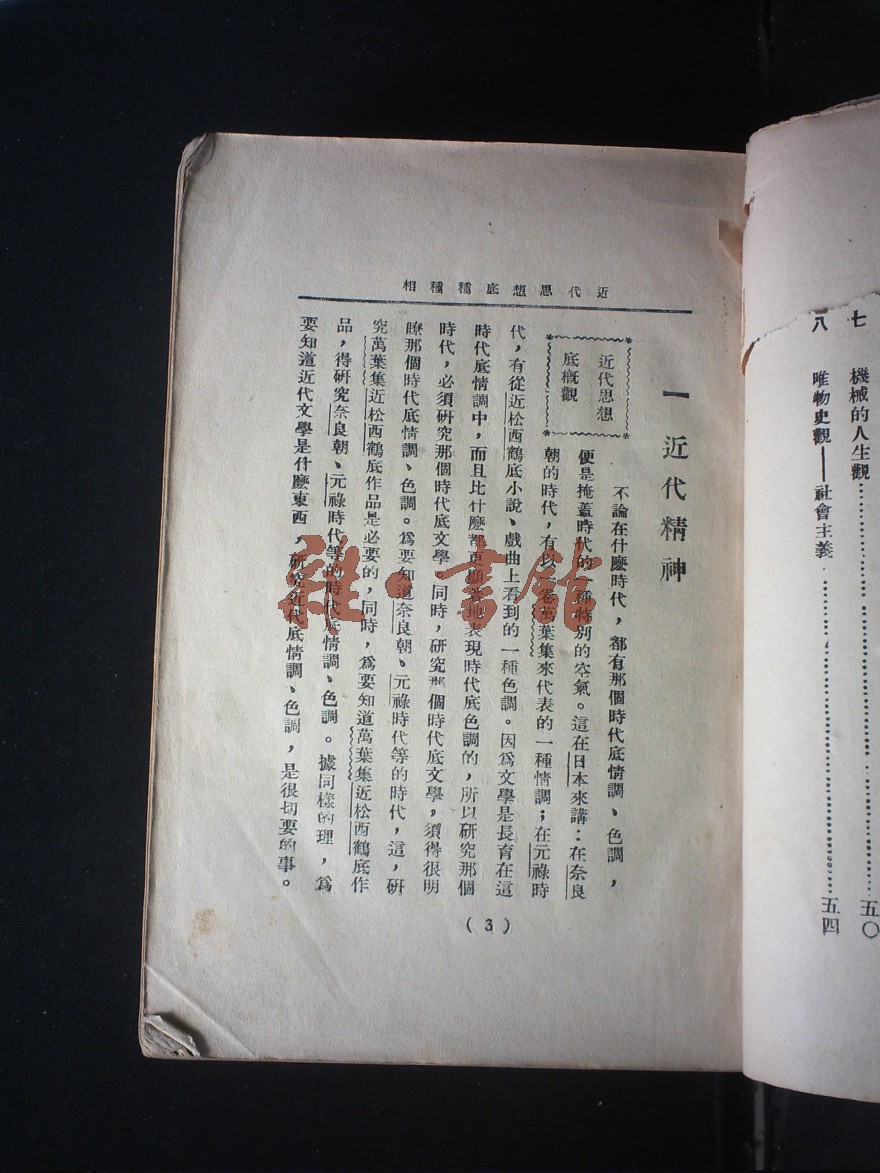 七 機械的人生觀……………………五〇
八 唯物史觀——社會主義……………………五四
近代思想底種種相
一 近代精神
近代思想
底概觀
不論在什麼時代，都有那個時代底情調、色調，
便是掩蓋時代的一種特別的空氣。這在日本來講：在奈良
朝的時代，有以一卷萬葉集來代表的一種情調；在元祿時
代，有從近松西鶴底小說、戲曲上看到的一種色調。因爲文學是長育在這
時代底情調中，而且比什麼都更顯著地表現時代底色調的，所以研究那個
時代，必須研究那個時代底文學 同時，研究那個時代底文學，須得很明
瞭那個時代底情調、色調。爲要知道奈良朝、元祿時代等的時代，這，研
究萬葉集近松西鶴底作品是必要的，同時，爲要知道萬葉集近松西鶴底作
品，得研究奈良朝、元祿時代等的時代底情調、色調。據同樣的理，爲
要知道近代文學是什麼東西，研究近代底情調、色調，是很切要的事。
(3)
雜·書館